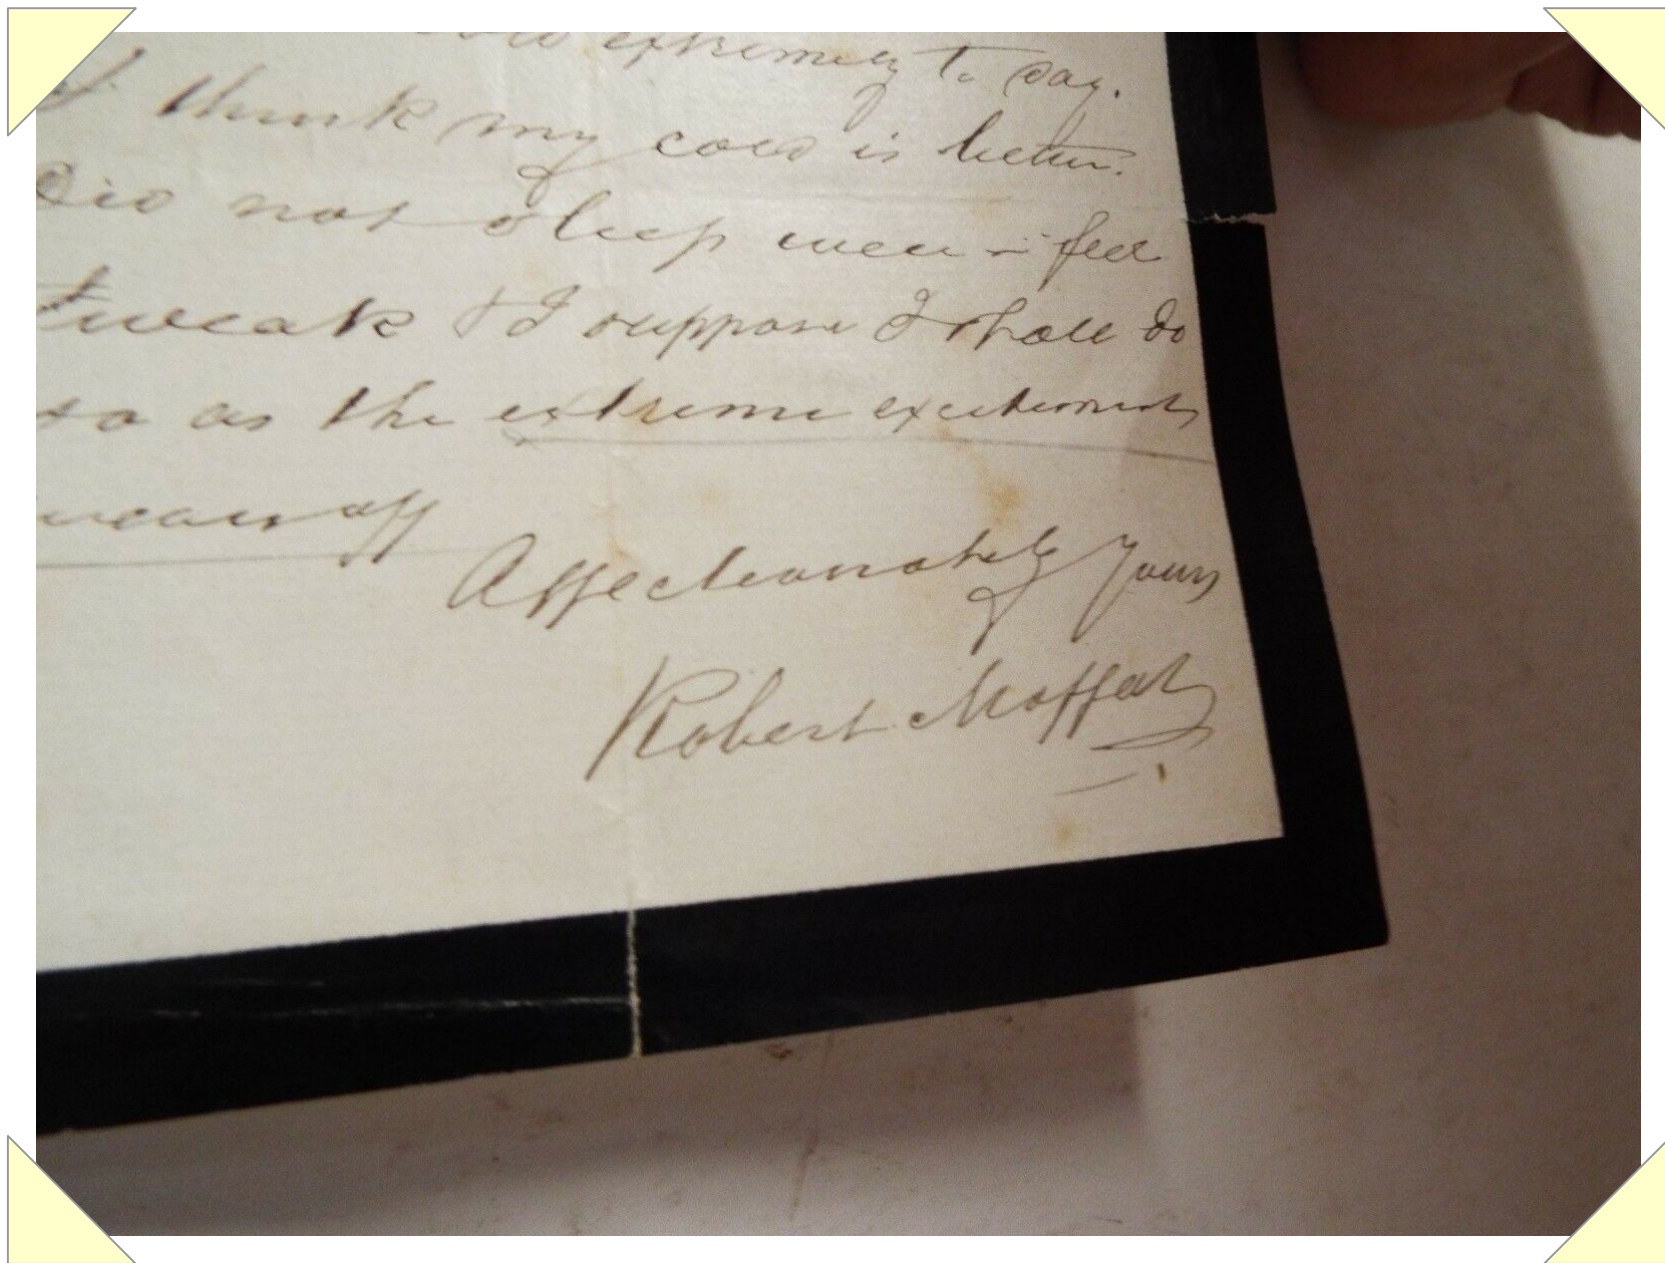 extremely to day.
I think my cold is better.
Did not sleep well – feel
weak & I suppose I shall do
so as the extreme excitement
wears off
Affectionately Yours
Robert Moffat